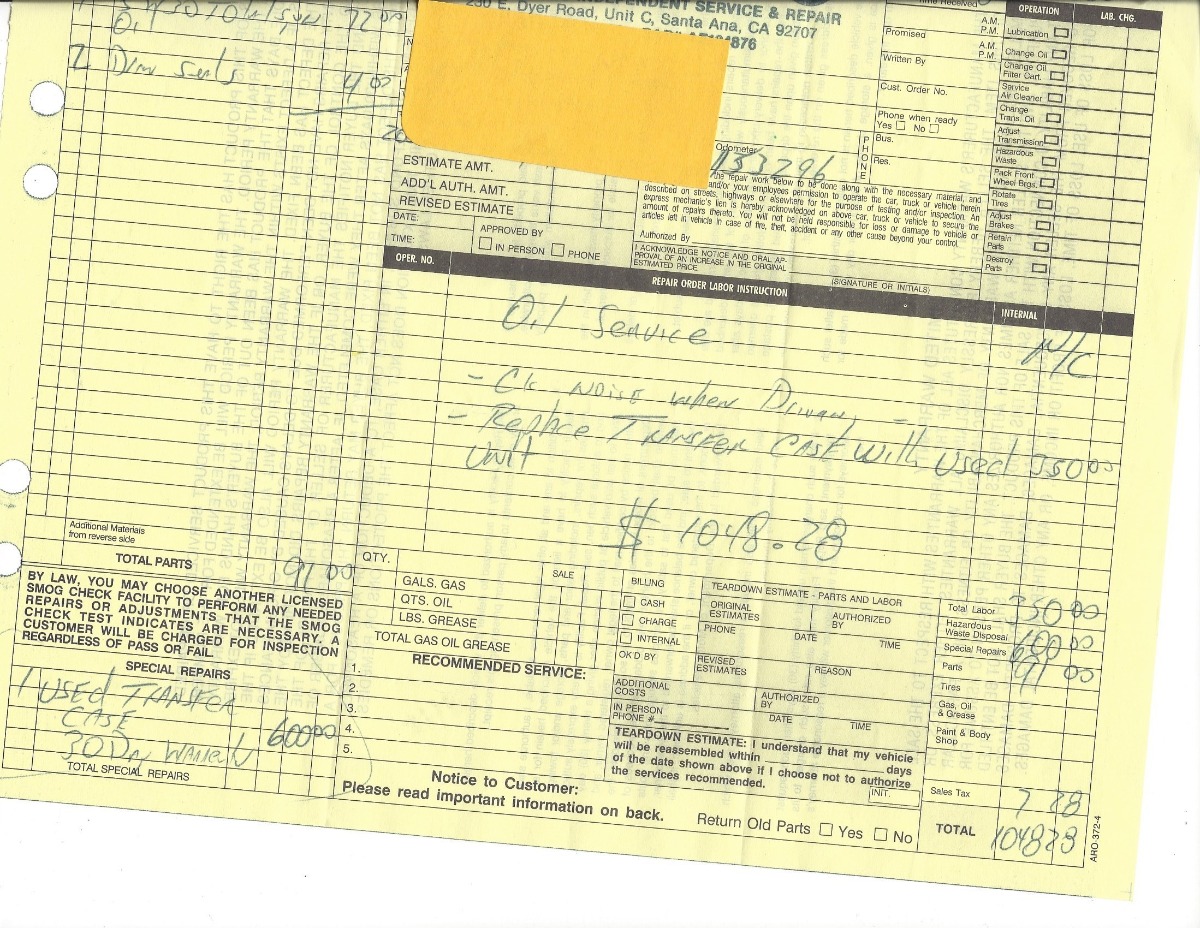 5W30 Tot. Syn 72 00
Oil
2 Drain Seals 4 00
ENDENT SERVICE & REPAIR
230 E. Dyer Road, Unit C, Santa Ana, CA 92707
876
Time Received
A.M.
P.M.
Promised
A.M.
P.M.
Written By
Cust. Order No.
Phone when ready
Yes No
PHONE
Bus.
Res.
OPERATION LAB. CHG.
Lubrication
Change Oil
Change Oil
Filter Cart.
Service
Air Cleaner
Change
Trans. Oil
Adjust
Transmission
Hazardous
Waste
Pack Front
Wheel Brgs.
Rotate
Tires
Adjust
Brakes
Retain
Parts
Destroy
Parts
Odometer
153296
ESTIMATE AMT.
ADD'L AUTH. AMT.
REVISED ESTIMATE
DATE:
TIME:
APPROVED BY
IN PERSON PHONE
the repair work below to be done along with the necessary material, and
and/or your employees permission to operate the car, truck or vehicle herein
described on streets, highways or elsewhere for the purpose of testing and/or inspection. An
express mechanic's lien is hereby acknowledged on above car, truck or vehicle to secure the
amount of repairs thereto. You will not be held responsible for loss or damage to vehicle or
articles left in vehicle in case of fire, theft, accident or any other cause beyond your control.
Authorized By
I ACKNOWLEDGE NOTICE AND ORAL AP-
PROVAL OF AN INCREASE IN THE ORIGINAL
ESTIMATED PRICE.
(SIGNATURE OR INITIALS)
OPER. NO. REPAIR ORDER LABOR INSTRUCTION INTERNAL
Oil Service N/C
- Ck Noise when Driving
- Replace Transfer Case with used 350 00
Unit
$ 1048.28
Additional Materials
from reverse side
TOTAL PARTS 91 00
BY LAW, YOU MAY CHOOSE ANOTHER LICENSED
SMOG CHECK FACILITY TO PERFORM ANY NEEDED
REPAIRS OR ADJUSTMENTS THAT THE SMOG
CHECK TEST INDICATES ARE NECESSARY. A
CUSTOMER WILL BE CHARGED FOR INSPECTION
REGARDLESS OF PASS OR FAIL.
SPECIAL REPAIRS
1 Used Transfer
Case 600 00
30 Day Warranty
TOTAL SPECIAL REPAIRS
QTY. SALE
GALS. GAS
QTS. OIL
LBS. GREASE
TOTAL GAS OIL GREASE
RECOMMENDED SERVICE:
1.
2.
3.
4.
5.
Notice to Customer:
Please read important information on back.
BILLING
CASH
CHARGE
INTERNAL
TEARDOWN ESTIMATE - PARTS AND LABOR
ORIGINAL
ESTIMATES
AUTHORIZED
BY
PHONE DATE TIME
OK'D BY
REVISED
ESTIMATES
REASON
ADDITIONAL
COSTS
AUTHORIZED
BY
IN PERSON
PHONE #
DATE TIME
TEARDOWN ESTIMATE: I understand that my vehicle
will be reassembled within days
of the date shown above if I choose not to authorize
the services recommended.
INIT.
Return Old Parts Yes No
Total Labor 350 00
Hazardous
Waste Disposal
Special Repairs 600 00
Parts 91 00
Tires
Gas, Oil
& Grease
Paint & Body
Shop
Sales Tax 7 28
TOTAL 1048 28
ARO-372-4